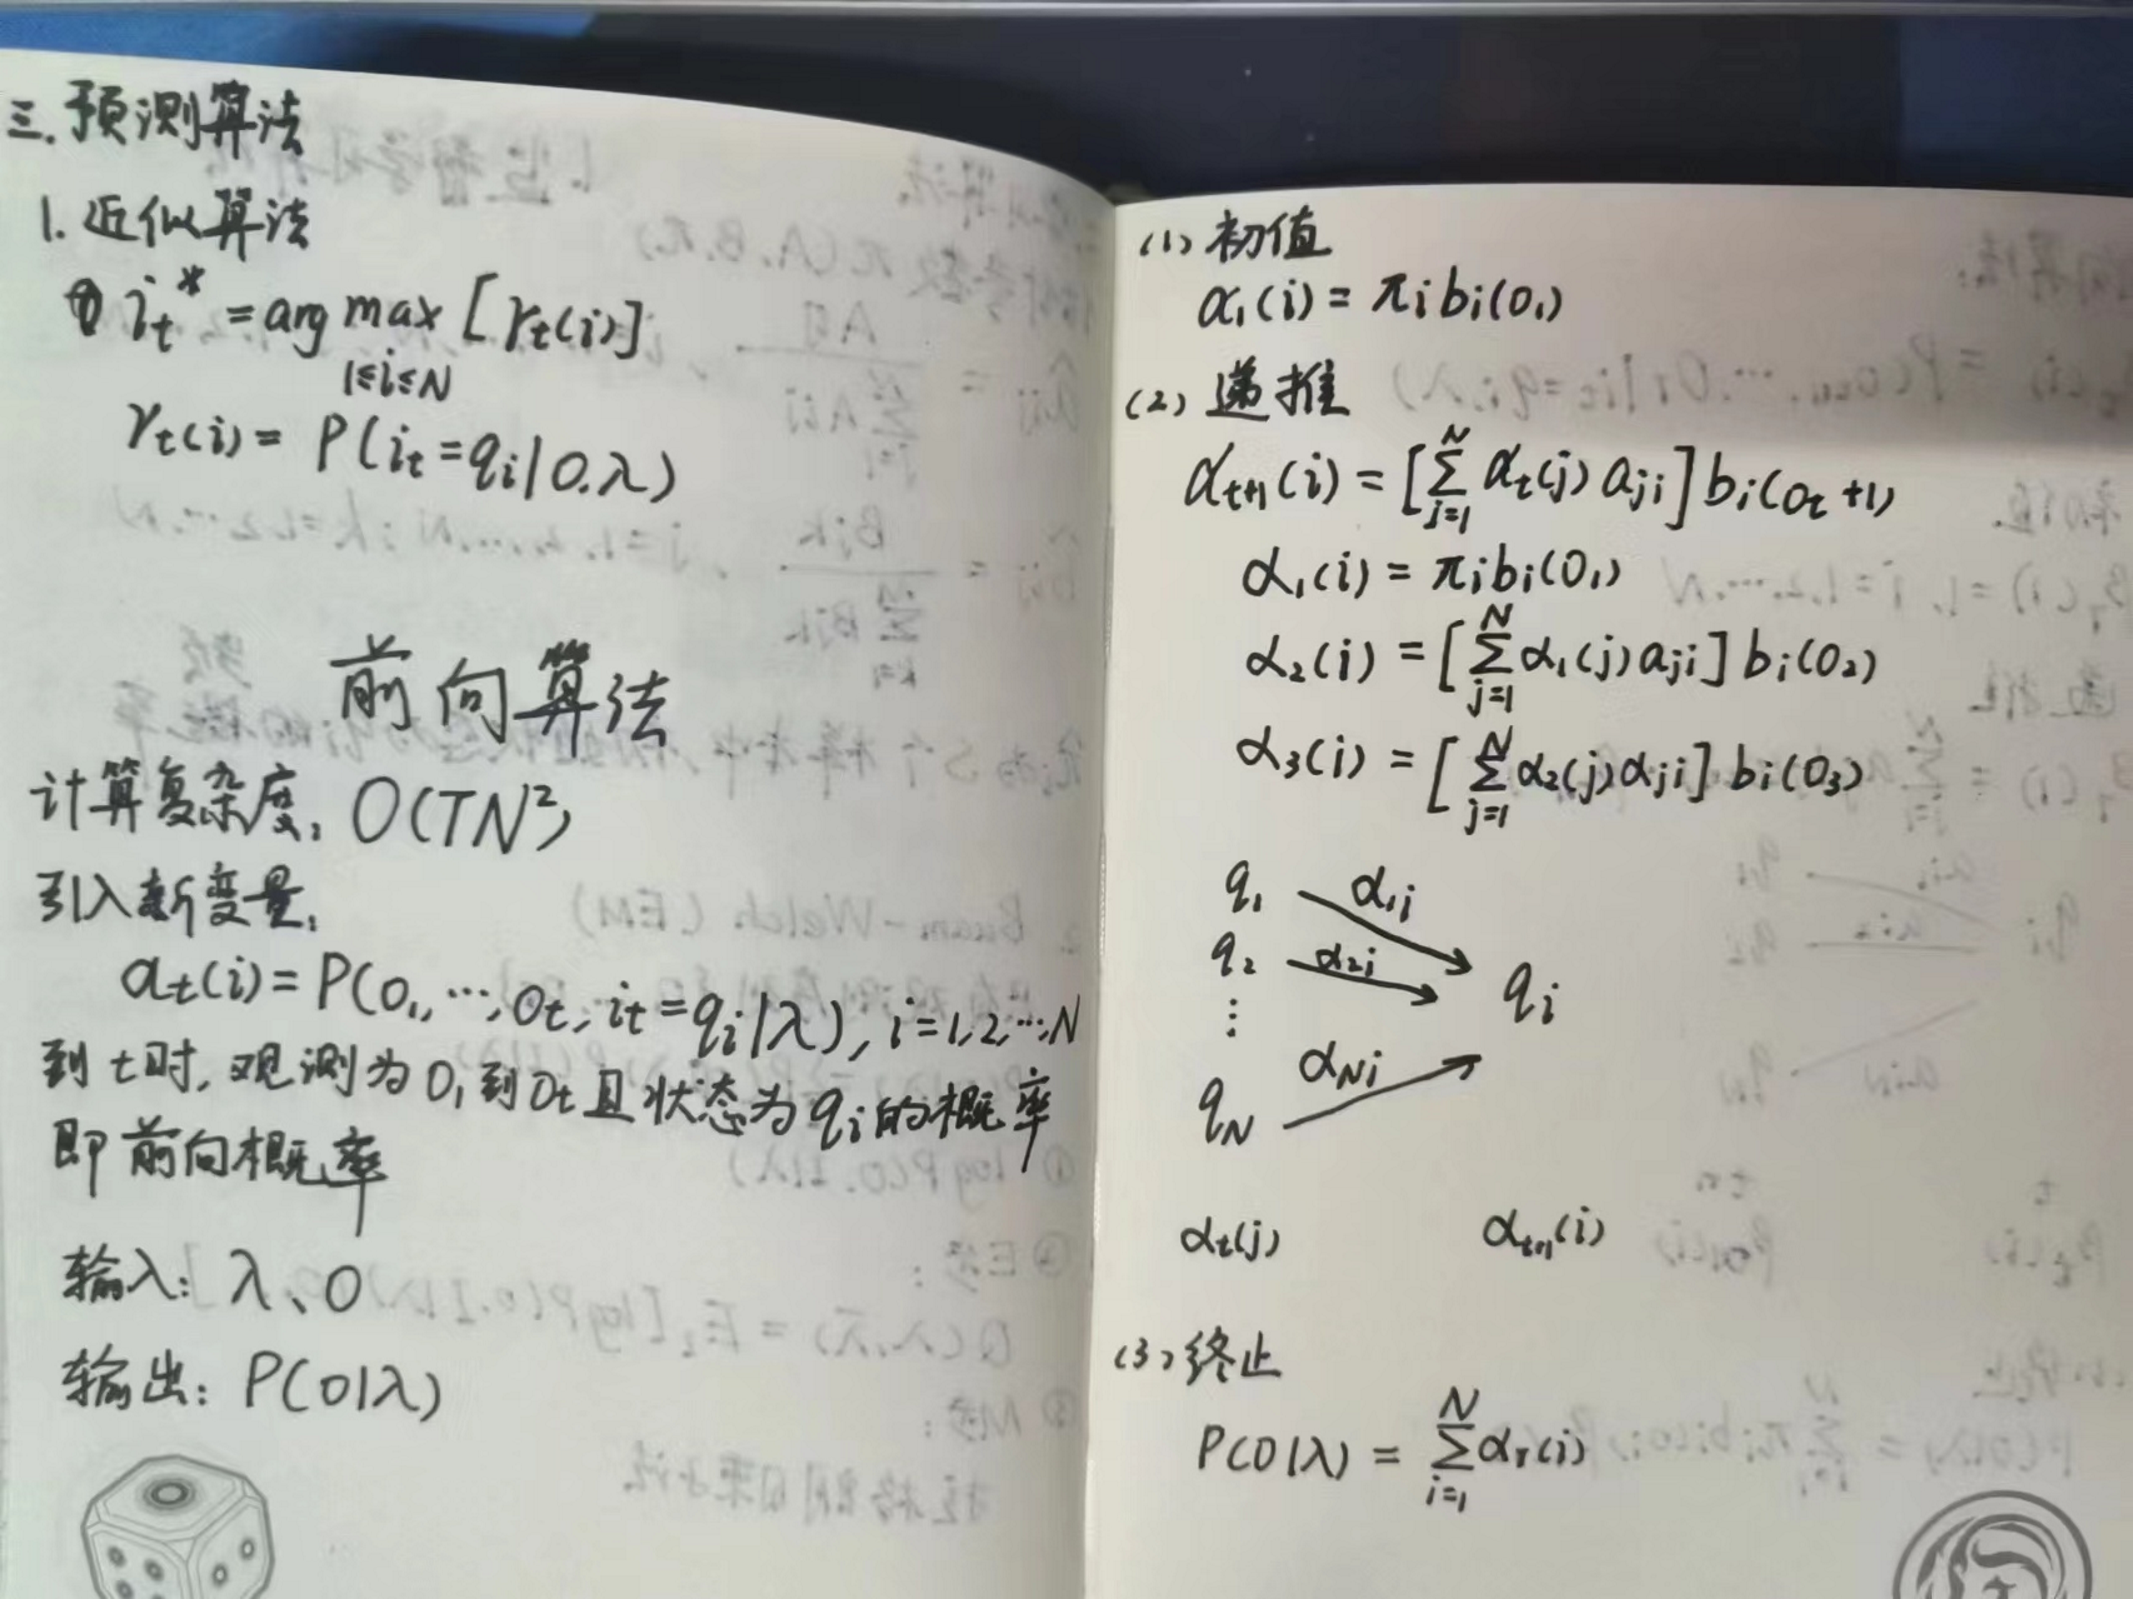 三.预测算法
1.近似算法
① it* = arg max [γt(i)]
1≤i≤N
γt(i) = P(it=qi|O.λ)
前向算法
计算复杂度: O(TN²)
引入新变量:
αt(i) = P(O1,…,Ot, it=qi|λ), i=1,2,…,N
到t时,观测为O1到Ot且状态为qi的概率
即前向概率
输入: λ、O
输出: P(O|λ)
(1) 初值
α1(i) = πi bi(O1)
(2) 递推
αt+1(i) = [∑_{j=1}^{N} αt(j) aji] bi(Ot+1)
α1(i) = πi bi(O1)
α2(i) = [∑_{j=1}^{N} α1(j) aji] bi(O2)
α3(i) = [∑_{j=1}^{N} α2(j) αji] bi(O3)
q1 α1i
q2 α2i qi
⋮
qN αNi
αt(j) αt+1(i)
(3) 终止
P(O|λ) = ∑_{i=1}^{N} αT(i)